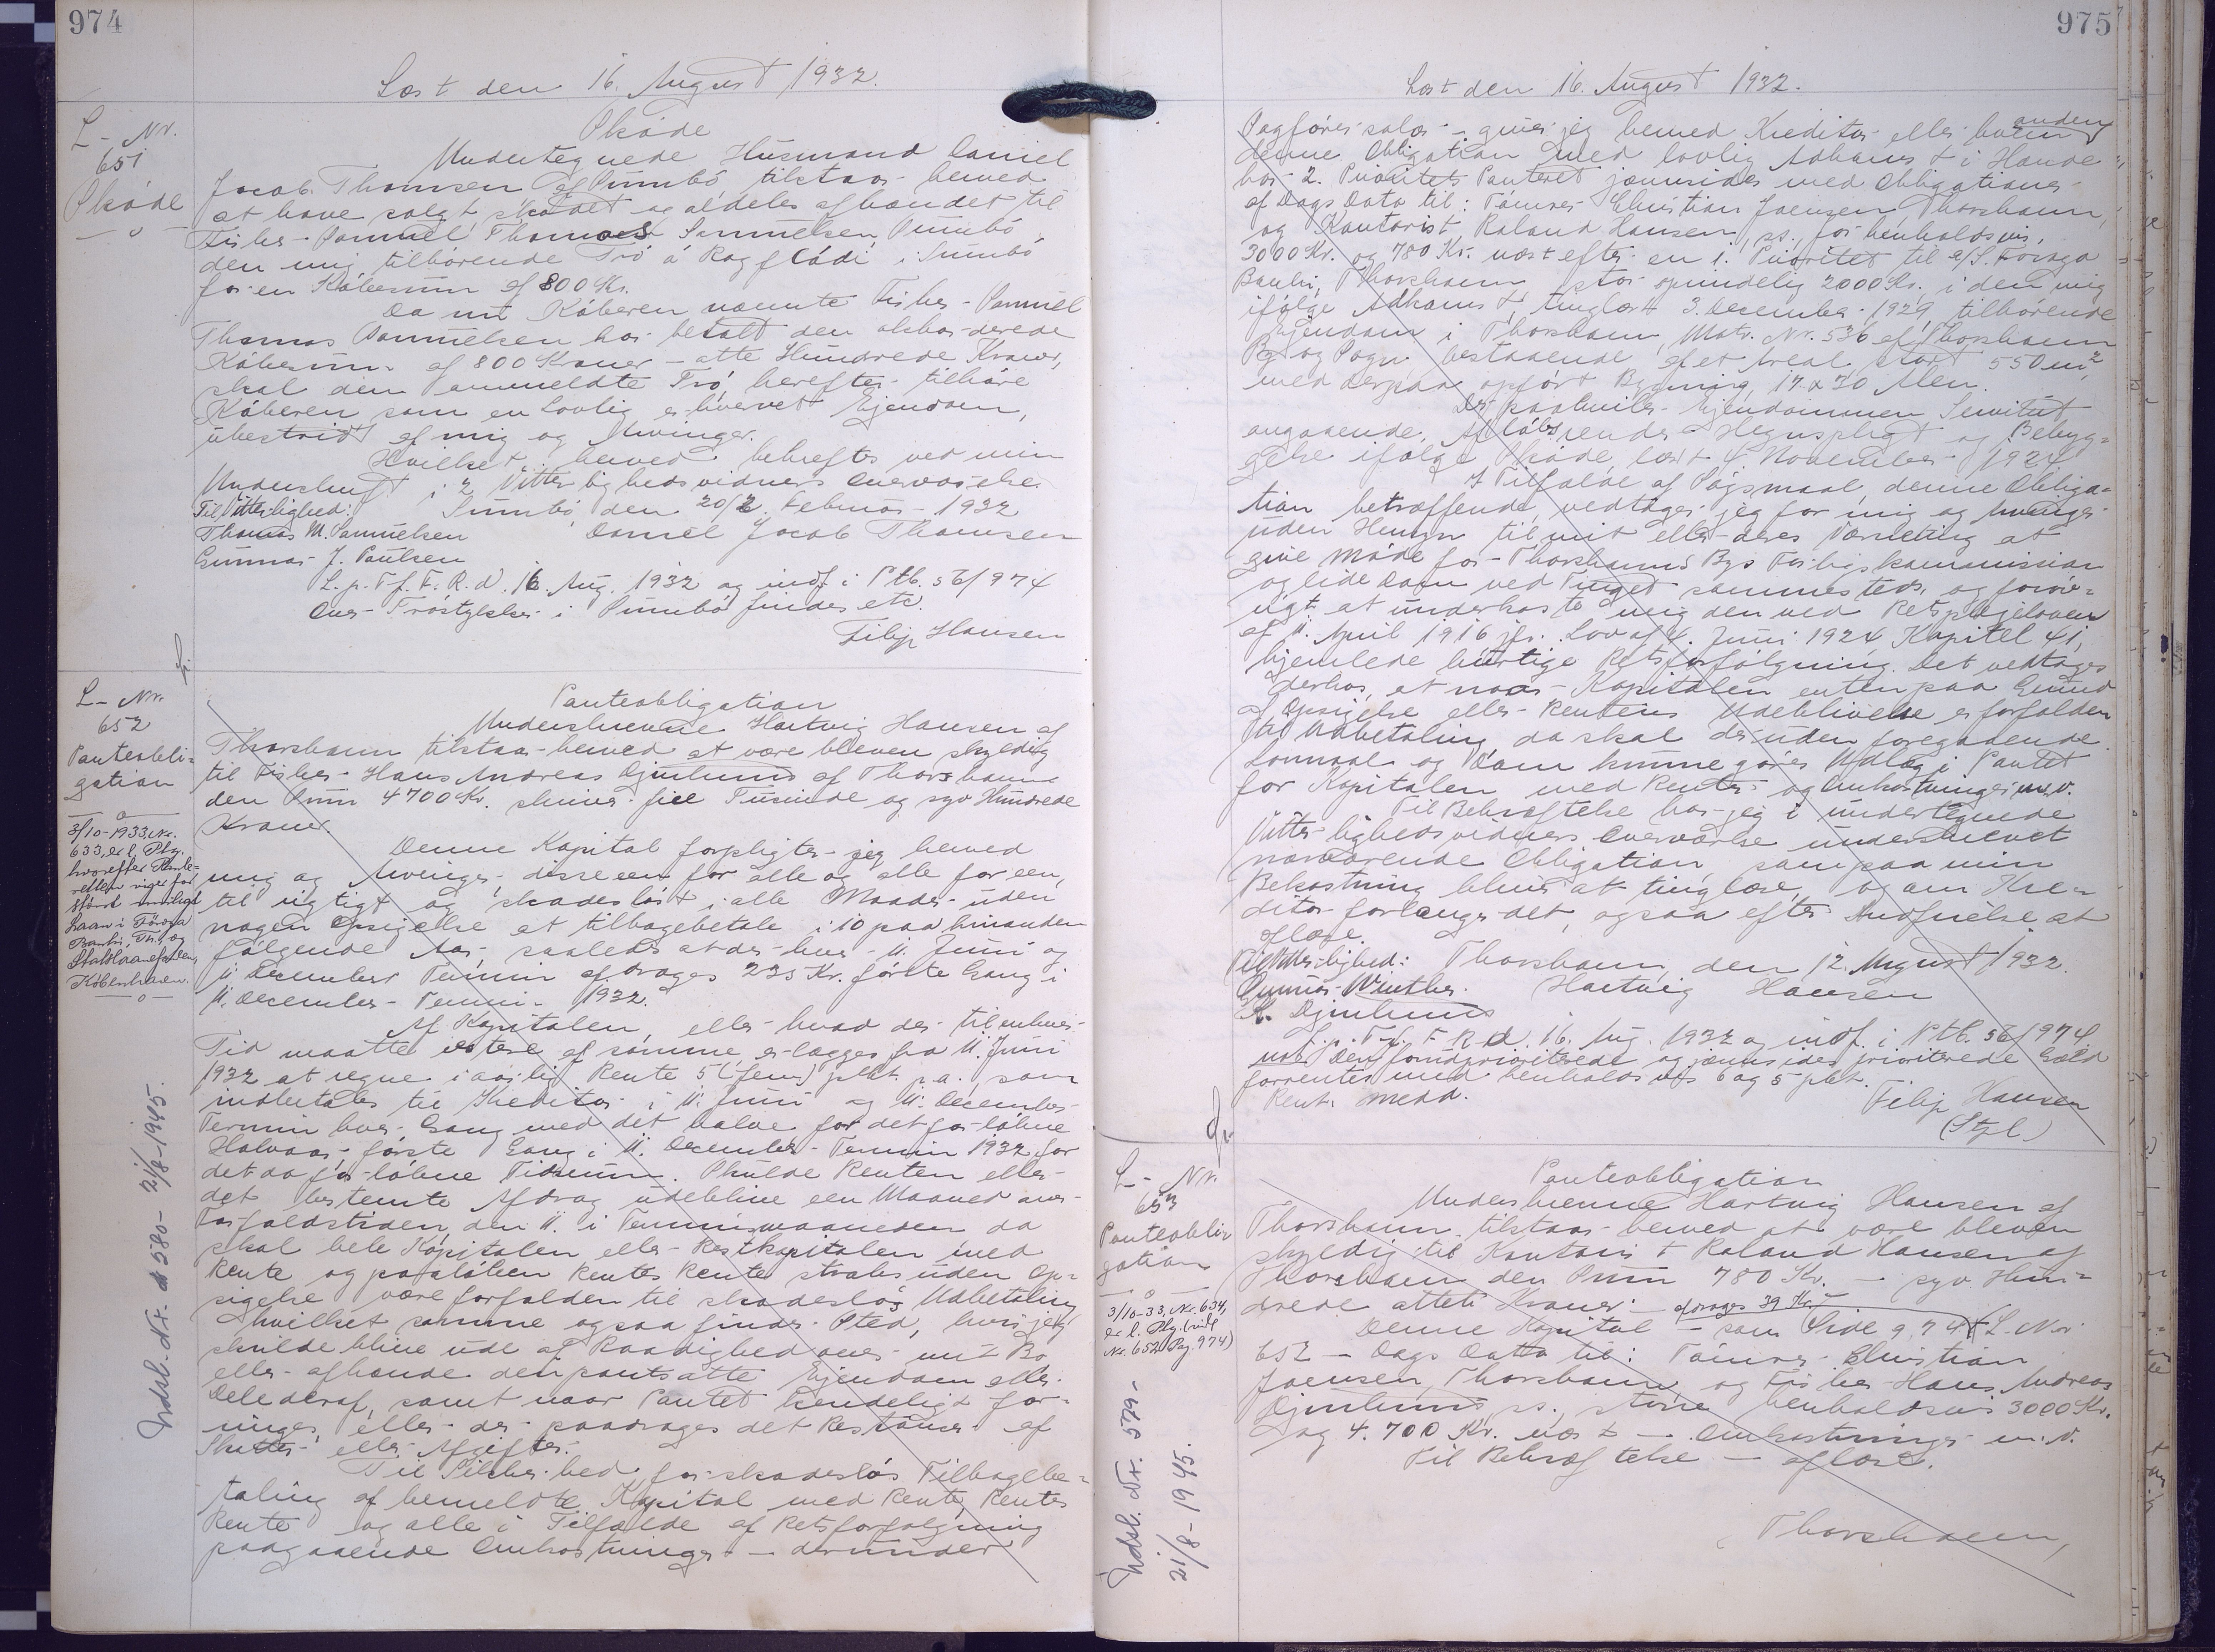 974
Læst den 16. August 1932.
L-Nr.
651
Skøde
Skøde
Undertegnede Husmand Daniel
Jacob Thomsen af Sumbø tilstaar herved
at have solgt skødet og aldeles afhændet til
Fisker Samuel Thomas Samuelsen Sumbø
den mig tilhørende Tró á Ragfládi i Sumbø
for en Købesum af 800 Kr.
Da nu Køberen nævnte Fisker Samuel
Thomas Samuelsen har betalt den akkorderede
Købesum af 800 Kroner - otte Hundrede Kroner,
skal den anmeldte Tró herefter tilhøre
Køberen som en lovlig erhvervet Ejendom,
ubestridt af mig og Arvinger.
Hvilket herved bekræftes ved min
Underskrift i 2 Vitterlighedsvidners Overværelse
Sumbø, den 20/2. Februar 1932
Til Vitterlighed:
Thomas M. Samuelsen Daniel Jacob Thomsen
Gunnar J. Poulsen
L. p. T. f. F. R. d. 16. Aug. 1932 og indf. i Ptb. 56/974
Over Tróstykker i Sumbø findes etc.
Filip Hansen
L-Nr.
652
Panteobli-
gation
3/10-1933, Nr.
633, er l. Ptg.
hvorefter Pante-
retten viger for
størst muligt
Laan i Føroya
Banki, Th. og
Statslaanefonden,
København.
Indsl. Nr. 580- 21/8-1945.
Panteobligation
Underskrevne Hartvig Hansen af
Thorshavn tilstaar herved at være bleven skyldig
til Fisker Hans Andreas Djurhuus af Thorshavn
den Sum 4700 Kr. skriver fire Tusinde og syv Hundrede
Kroner.
Denne Kapital forpligter jeg herved
mig og Arvinger, disse een for alle og alle for een,
til rigtigt og skadesløst i alle Maader uden
nogen Opsigelse at tilbagebetale i 10 paa hinanden
følgende Aar, saaledes at der hver 11. Juni og
11. December Termin afdrages 235 Kr. første Gang i
11. December Termin 1932.
Af Kapitalen, eller hvad der til enhver
Tid maatte restere af samme, erlægges fra 11. Juni
1932 at regne i aarlig Rente 5 (fem) pCt. p. a., som
indbetales til Kreditor i 11. Juni og 11. December
Termin hver Gang med det halve for det forløbne
Halvaar, første Gang i 11. December Termin 1932 for
det da forløbne Tidsrum. Skulde Renten eller
det bestemte Afdrag udeblive een Maaned over
Forfaldstiden, den 11. i Terminsmaaneden da
skal hele Kapitalen eller Restkapitalen med
Rente og paaløben Rentes Rente straks uden Op-
sigelse være forfalden til skadesløs Udbetaling
hvilket samme ogsaa finder Sted, hvis jeg
skulde blive ude af Raadighed over mit Bo
eller afhænde den pantsatte Ejendom eller
Dele deraf, samt naar Pantet kendeligt for-
ringes, eller der paadrages det Restancer af
Skatter eller Afgifter.
Til Sikkerhed for skadesløs Tilbagebe-
taling af bemeldte Kapital med Rente, Rentes
Rente og alle i Tilfælde af Retsforfølgning
paagaaende Omkostninger - derunder
975
Læst den 16. August 1932.
Sagførersalær - giver jeg herved Kreditor eller hvem anden
denne Obligation med lovlig Adkomst i Hænde
har 2. Prioritets Panteret jævnsides med Obligationer
af Dags Dato til: Tømrer Christian Joensen, Thorshavn,
og Kontorist Roland Hansen, ss. for henholdsvis
3000 Kr. og 780 Kr. næst efter en 1. Prioritet til A/S. Føroya
Banki, Thorshavn, stor oprindelig 2000 Kr. i den mig
ifølge Adkomst, tinglæst 3. December 1929, tilhørende
Ejendom i Thorshavn, Matr. Nr. 536 af Thorshavn
By og Sogn bestaaende af et Areal, stort 550 m²,
med derpaa opført Bygning, 17 x 30 Alen.
Der paahviler Ejendommen Servitut
angaaende Afløbsrender Hegnspligt og Bebyg-
gelse ifølge Skøde, læst 4. November 1924
I Tilfælde af Søgsmaal, denne Obliga-
tion betræffende, vedtager jeg for mig og Arvinger
uden Hensyn til mit eller deres Værneting at
give Møde for Thorshavns Bys Forligskommission
og lide Dom ved Tinget sammesteds, og forøv-
rigt at underkaste mig den ved Retsplejeloven
af 11. April 1916 jfr. Lov af 4. Juni 1924 Kapitel 41,
hjemlede hurtige Retsforfølgning. Det vedtages
derhos, at naar Kapitalen enten paa Grund
af Opsigelse eller Rentens Udeblivelse er forfalden
til Udbetaling da skal der uden foregaaende
Lovmaal og Dom kunne gøres Udlæg i Pantet
for Kapitalen med Renter og Omkostninger m. v.
Til Bekræftelse har jeg i undertegnede
Vitterlighedsvidners Overværelse underskrevet
nærværende Obligation, som paa min
Bekostning bliver at tinglæse, og om Kre-
ditor forlanger det, ogsaa efter Indfrielse at
aflæse.
Thorshavn, den 12. August 1932.
Til Vitterlighed:
Gunnar Winther. Hartvig Hansen
A. Djurhuus
L. p. T. f. F. R. d. 16. Aug. 1932 og indf. i Ptb. 56/974
Den foranprioriterede og jævnsides prioriterede Gæld
forrentes med henholdsvis 6 og 5 pCt.
Rente medd.
Filip Hansen
(Stpl.)
L-Nr.
653
Panteobli-
gation
3/10-33, Nr. 634,
er l. Ptg. (vide
Nr. 652 Pag. 974)
Indsl. Nr. 579-
21/8-1945.
Panteobligation
Underskrevne Hartvig Hansen af
Thorshavn tilstaar herved at være bleven
skyldig til Kontorist Roland Hansen af
Thorshavn den Sum 780 Kr. - syv Hun-
drede otteti Kroner. - afdrages 39 Kr. -
Denne Kapital - som Side 974 L-Nr.
652 - Dags Dato til: Tømrer Christian
Joensen, Thorshavn, og Fisker Hans Andreas
Djurhuus ss., store henholdsvis 3000 Kr.
og 4.700 Kr. næst - Omkostninger m. v.
Til Bekræftelse - aflæse.
Thorshavn,